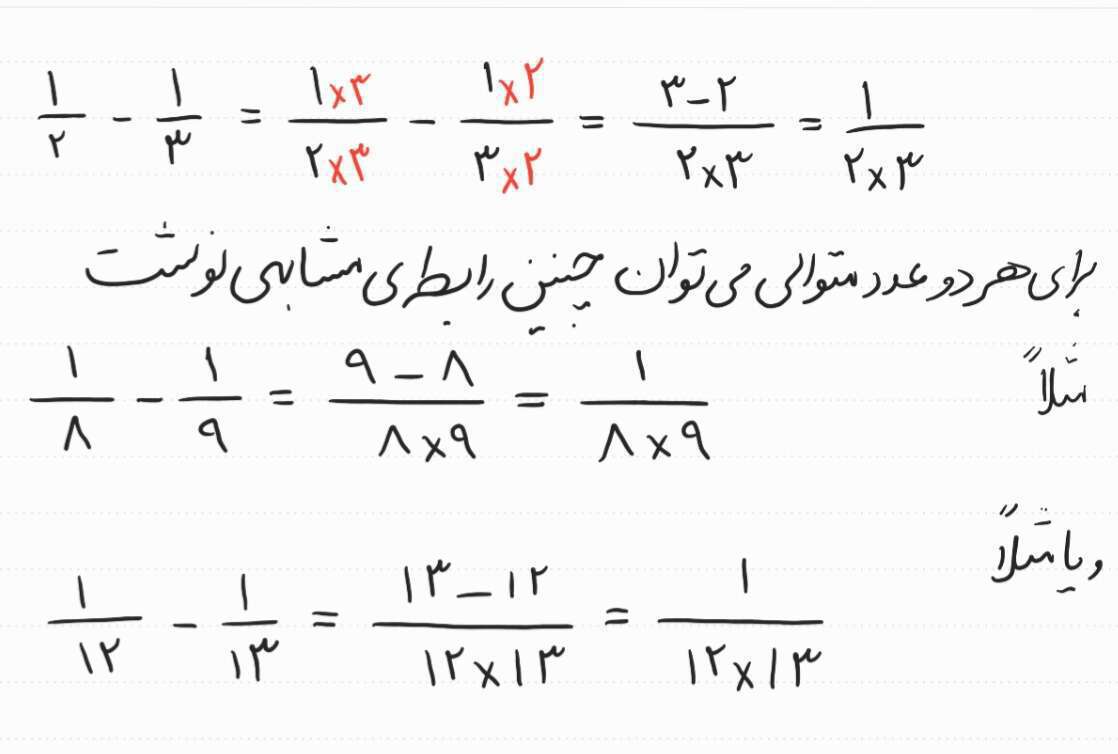 ۱/۲ - ۱/۳ = ۱×۳/۲×۳ - ۱×۲/۳×۲ = ۳-۲/۲×۳ = ۱/۲×۳
برای هر دو عدد متوالی می توان چنین رابطه ی مشابهی نوشت
مثلاً
۱/۸ - ۱/۹ = ۹-۸/۸×۹ = ۱/۸×۹
و یا مثلاً
۱/۱۲ - ۱/۱۳ = ۱۳-۱۲/۱۲×۱۳ = ۱/۱۲×۱۳